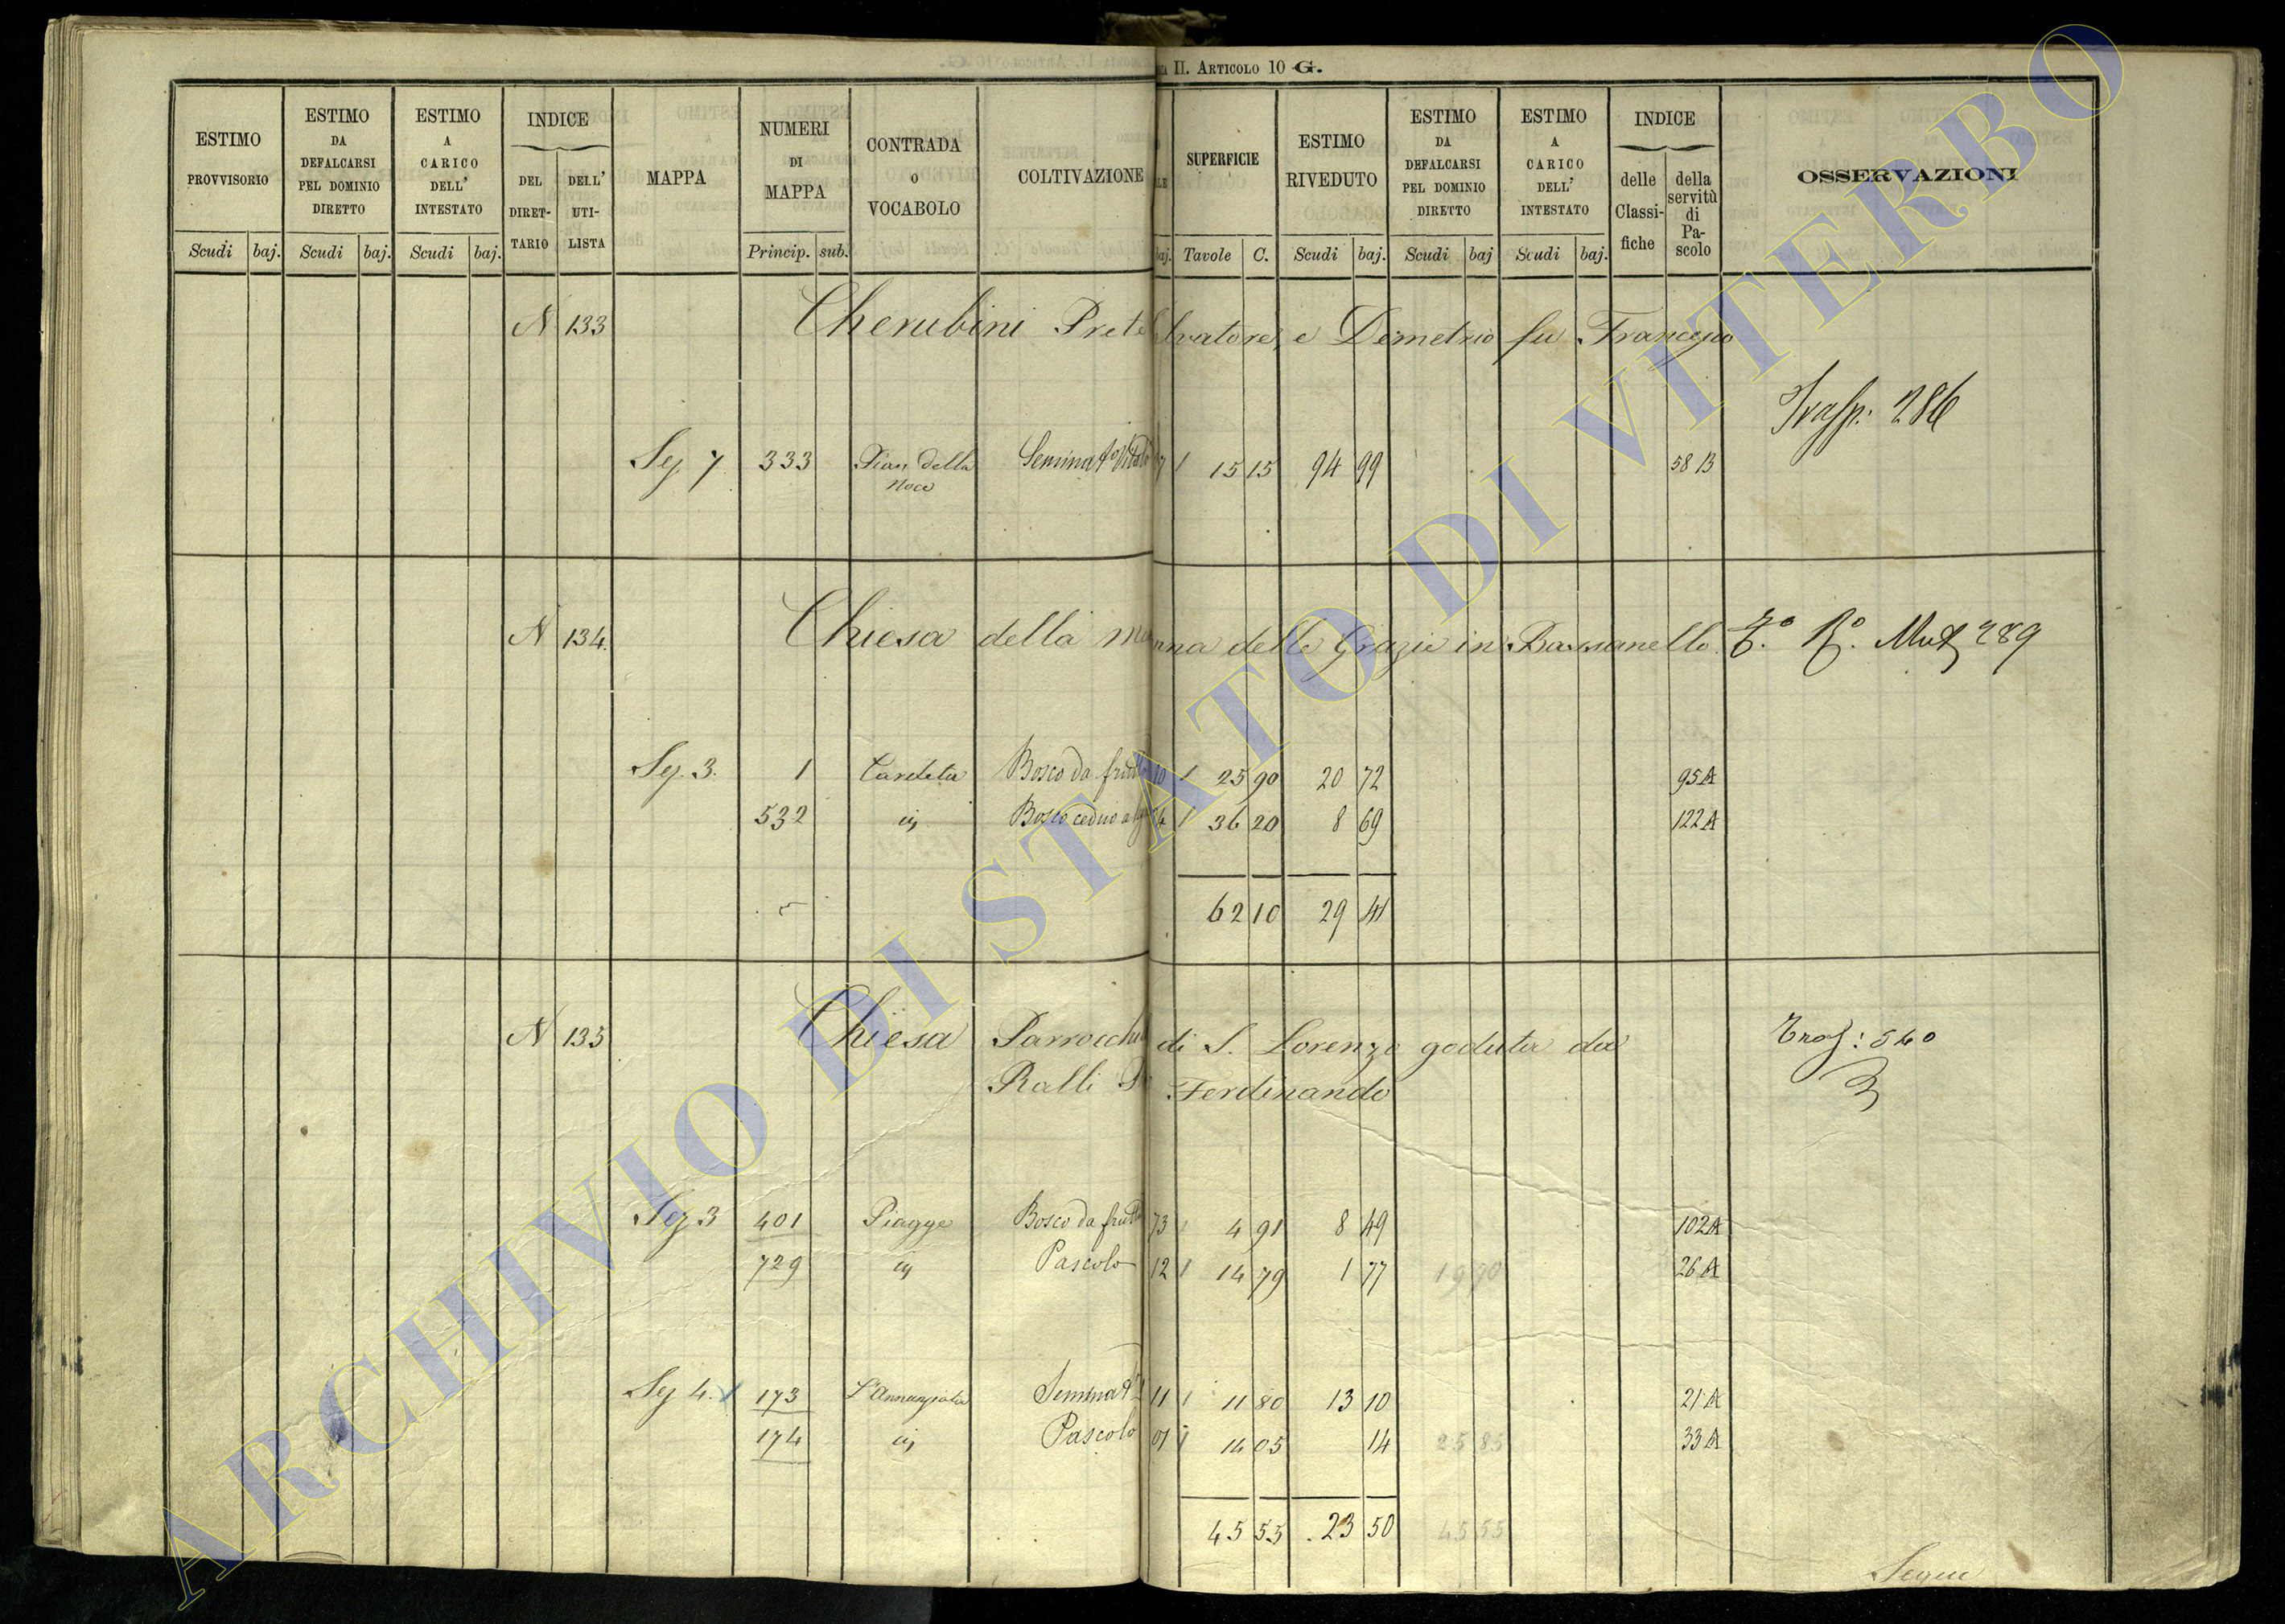 II. ARTICOLO 10 G.
ESTIMO PROVVISORIO Scudi baj.
ESTIMO DA DEFALCARSI PEL DOMINIO DIRETTO Scudi baj.
ESTIMO A CARICO DELL' INTESTATO Scudi baj.
INDICE DEL DIRET-TARIO DELL' UTI-LISTA
MAPPA
NUMERI DI MAPPA Princip. sub.
CONTRADA O VOCABOLO
COLTIVAZIONE
baj.
SUPERFICIE Tavole C.
ESTIMO RIVEDUTO Scudi baj.
ESTIMO DA DEFALCARSI PEL DOMINIO DIRETTO Scudi baj
ESTIMO A CARICO DELL' INTESTATO Scudi baj.
INDICE delle Classi-fiche della servitù di Pa-scolo
OSSERVAZIONI
N 133 Cherubini Prete lvatore, e Demetrio fu Francesco
Trasp: 286
Sez 7 333 Pian della Noce 15 15 94 99 58 B
N 134. Chiesa della Ma nna delle Grazie in Bassanello. Mut 289
Sez. 3. 1 Cardeta Bosco da frutto 10 25 90 20 72 95 A
532 Bosco ceduo 36 20 8 69 122 A
62 10 29 41
N 135 Chiesa Parrocchi di S. Lorenzo goduta da
Tras: 540
Ralli Ferdinando
Sez 3 401 Piagge Bosco da frutto 73 4 91 8 49 102 A
729 Pascolo 12 14 79 1 77 19 70 26 A
Sez 4. 173 L'Annunziata 11 11 80 13 10 21 A
174 Pascolo 01 14 05 14 25 85 33 A
45 55 23 50 45 55
Segue
ARCHIVIO DI STATO DI VITERBO